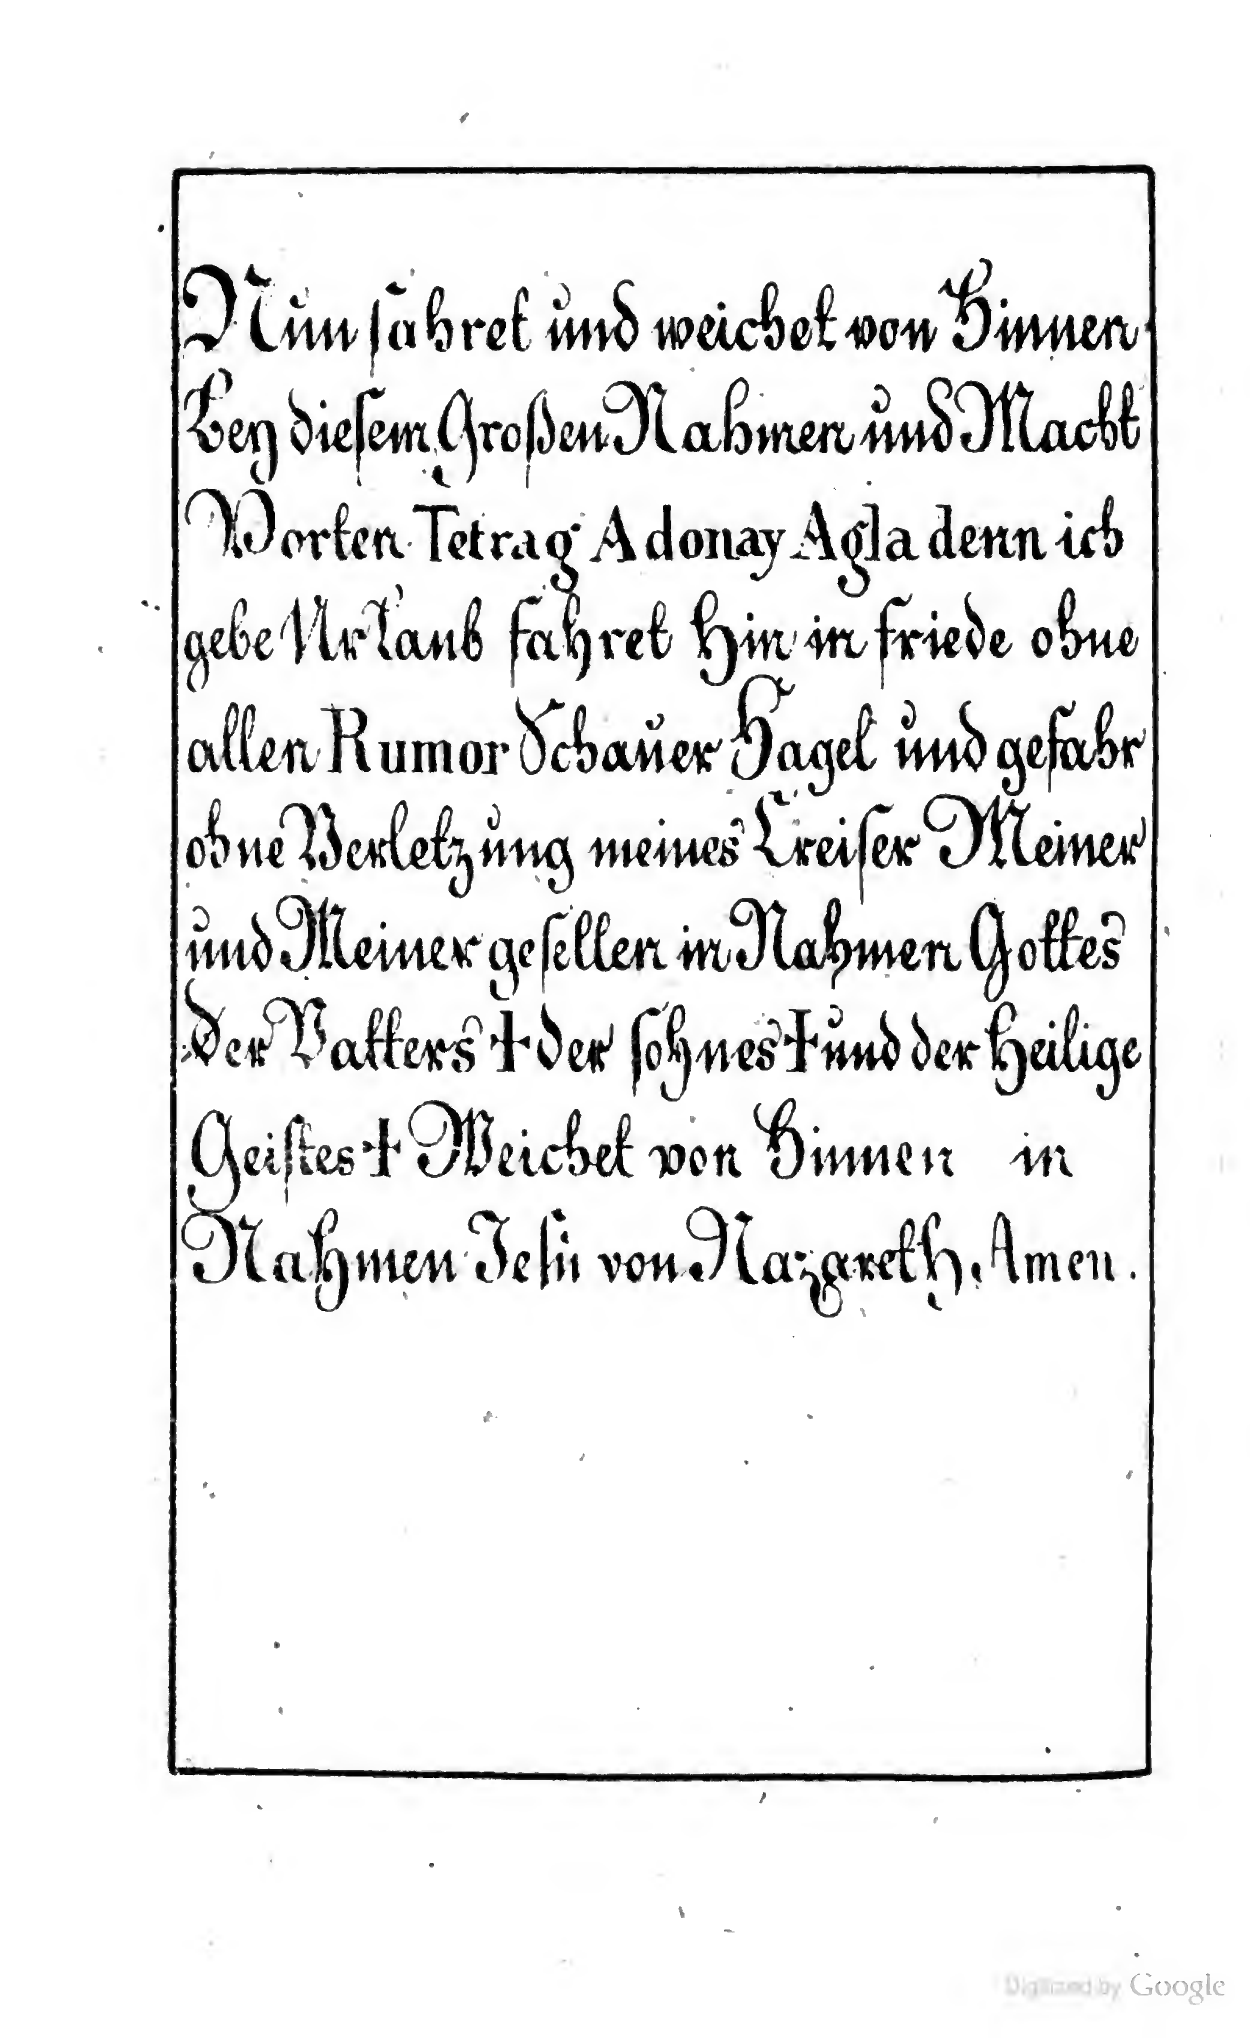 Nun fahret und weichet von Hinnen
Bey diesem Großen Nahmen und Macht
Worten Tetrag Adonay Agla denn ich
gebe Urlaub fahret Hin in friede ohne
allen Rumor Schauer Hagel und gefahr
ohne Verletzung meines Creiser Meiner
und Meiner gesellen in Nahmen Gottes
der Vatters ✝ der sohnes ✝ und der Heilige
Geistes ✝ Weichet von Hinnen in
Nahmen Jesu von Nazareth, Amen.
Digitized by Google